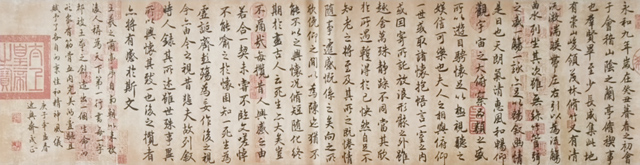 永和九年歲在癸丑暮春之初
會于會稽山陰之蘭亭修禊事
也羣賢畢至少長咸集此地
有崇山峻領茂林脩竹又有清
流激湍映帶左右引以為流觴
曲水列坐其次雖無絲竹管弦
之盛一觴一詠亦足以暢敘幽情
是日也天朗氣清惠風和暢仰
觀宇宙之大俯察品類之盛
所以遊目騁懷足以極視聽之
娛信可樂也夫人之相與俯仰
一世或取諸懷抱悟言一室之內
或因寄所託放浪形骸之外雖
趣舍萬殊靜躁不同當其欣
於所遇暫得於己快然自足不
知老之將至及其所之既倦情
隨事遷感慨係之矣向之所
欣俛仰之間以為陳迹猶不
能不以之興懷況脩短隨化終
期於盡古人云死生亦大矣豈
不痛哉每攬昔人興感之由
若合一契未嘗不臨文嗟悼不
能喻之於懷固知一死生為
虛誕齊彭殤為妄作後之視
今亦由今之視昔悲夫故列敘
時人錄其所述雖世殊事異
所以興懷其致一也後之攬者
亦將有感於斯文